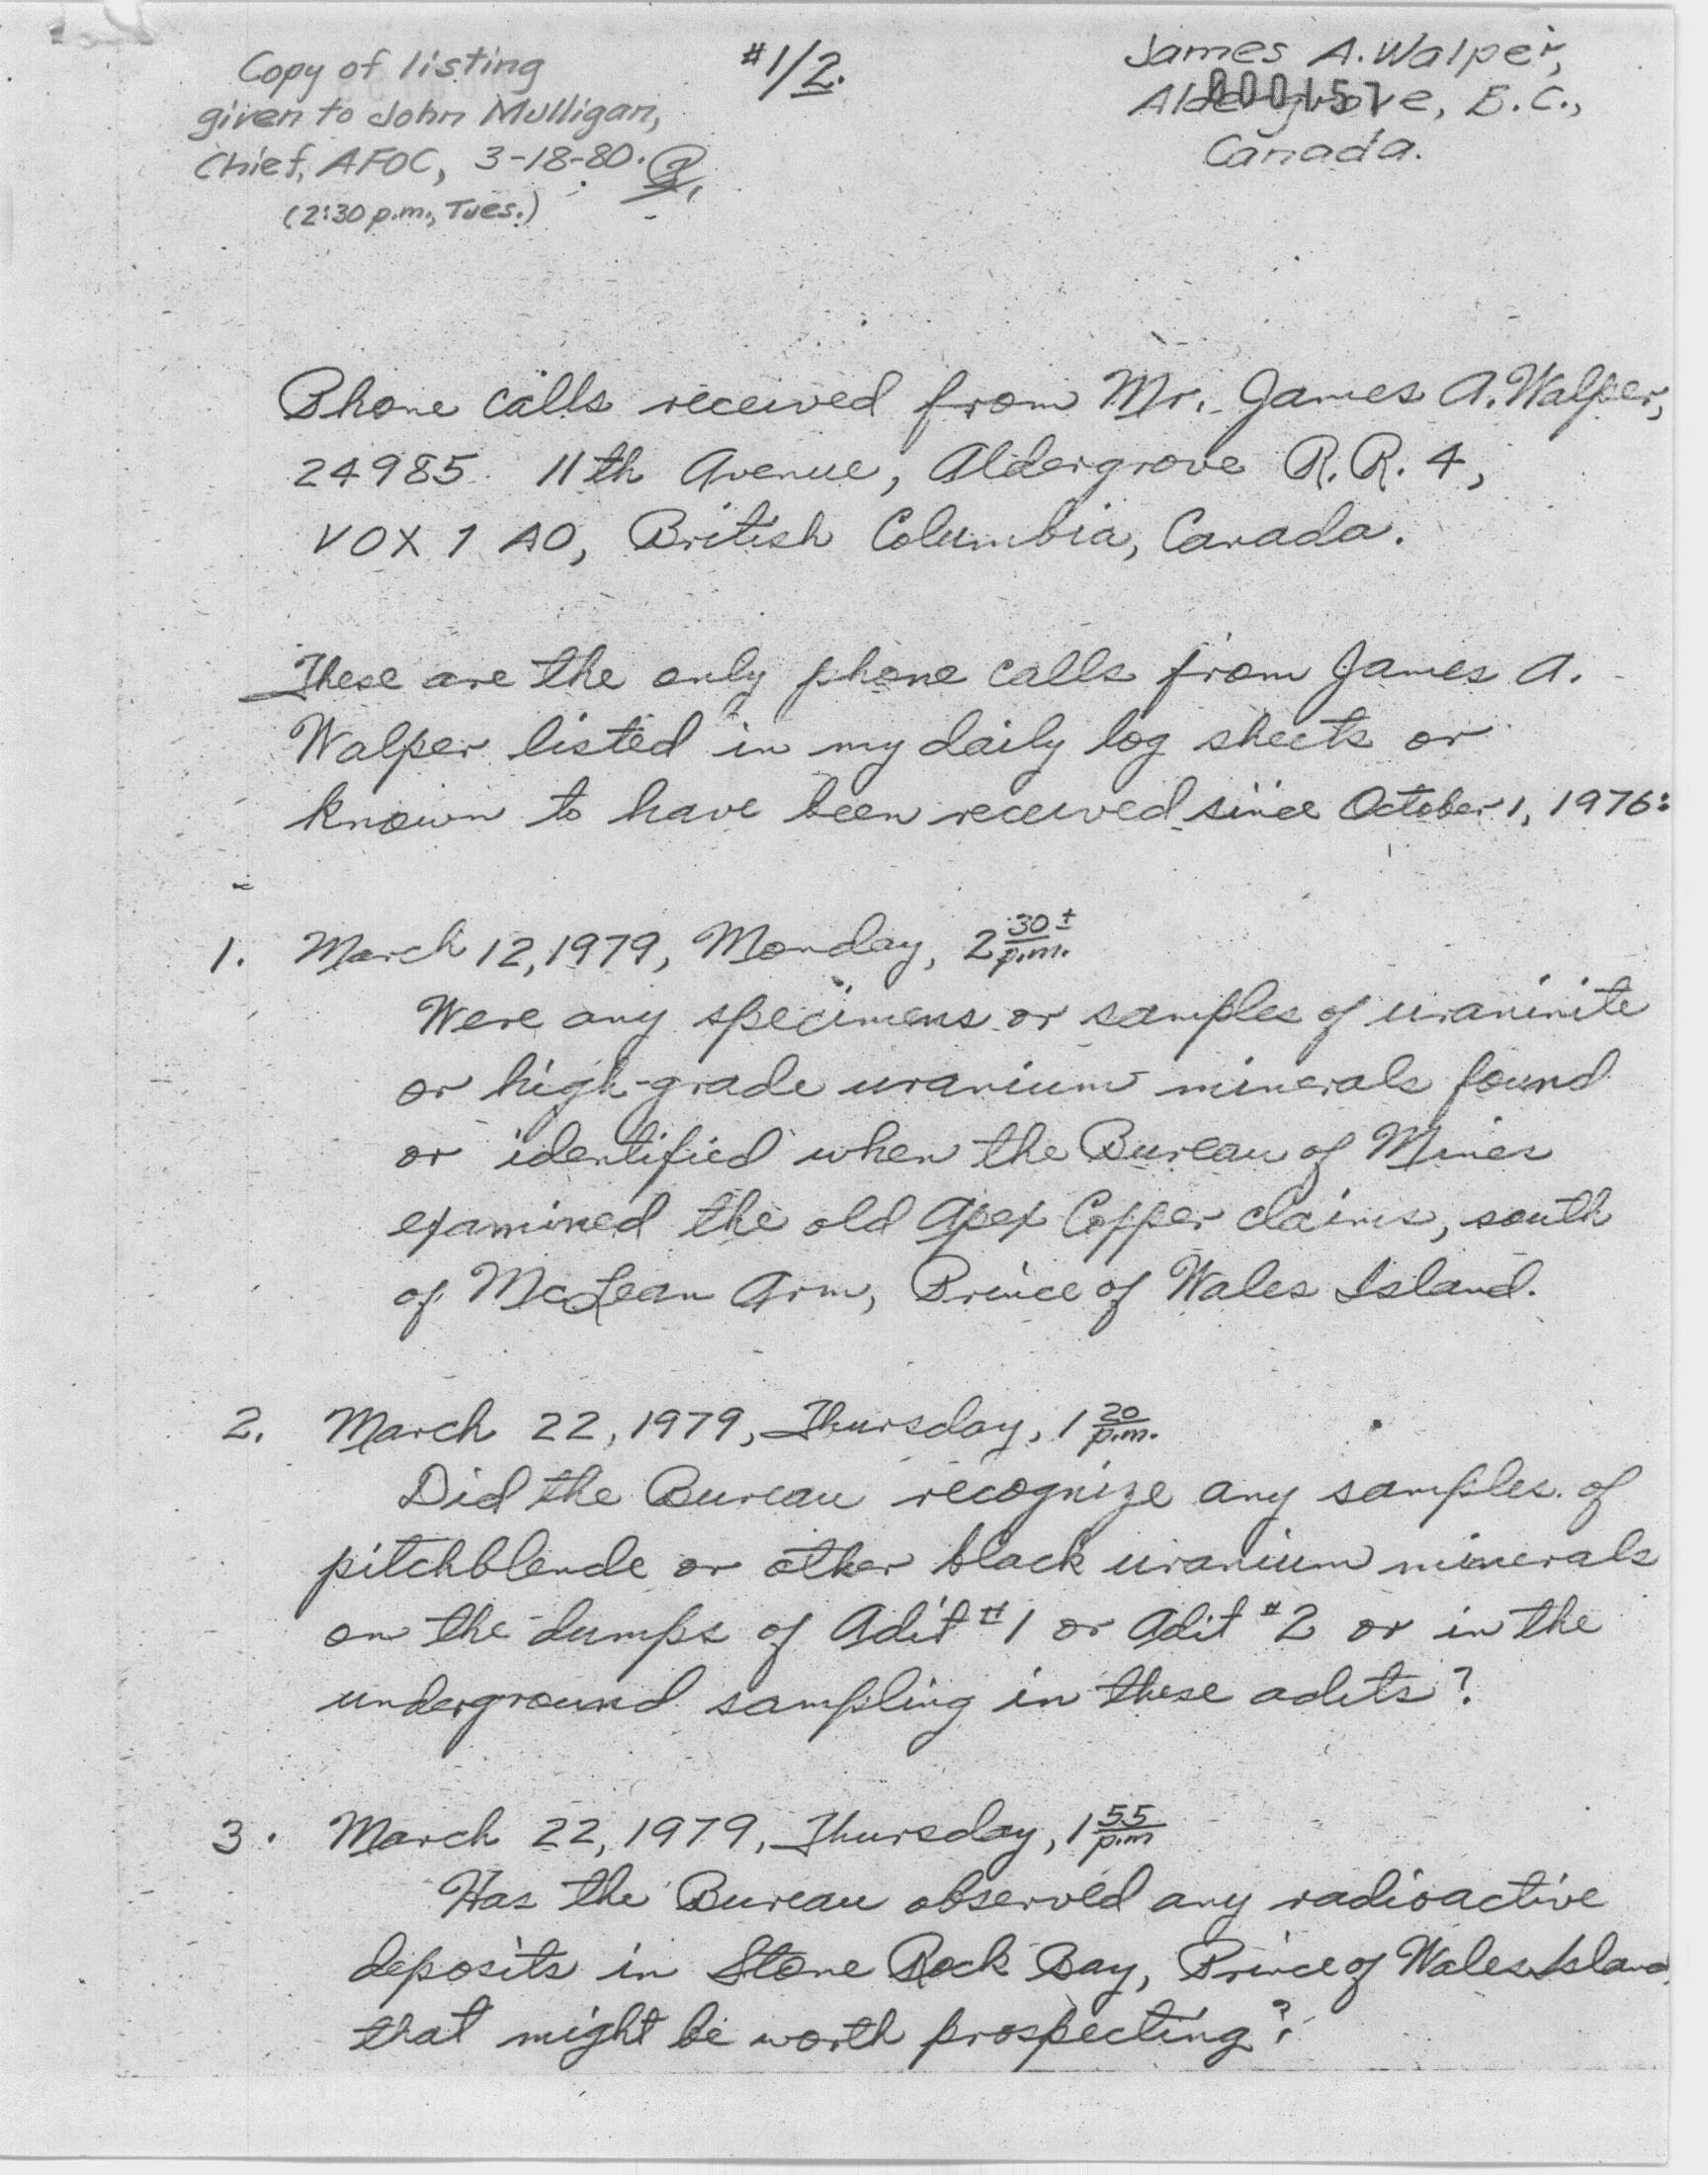 Copy of listing
given to John Mulligan,
Chief, AFOC, 3-18-80.
(2:30 p.m., Tues.)
#1/2.
James A. Walper,
Aldergrove, B.C.,
000157
Canada.
Phone calls received from Mr. James A. Walper,
24985 11th Avenue, Aldergrove R.R. 4,
VOX 1 A0, British Columbia, Canada.
These are the only phone calls from James A.
Walper listed in my daily log sheets or
known to have been received since October 1, 1976:
1. March 12, 1979, Monday, 2 30± p.m.
Were any specimens or samples of uraninite
or high-grade uranium minerals found
or identified when the Bureau of Mines
examined the old Apex Copper claims, south
of McLean Arm, Prince of Wales Island.
2. March 22, 1979, Thursday, 1 20 p.m.
Did the Bureau recognize any samples of
pitchblende or other black uranium minerals
on the dumps of Adit #1 or Adit #2 or in the
underground sampling in these adits?
3. March 22, 1979, Thursday, 1 55 p.m
Has the Bureau observed any radioactive
deposits in Stone Rock Bay, Prince of Wales Island
that might be worth prospecting?